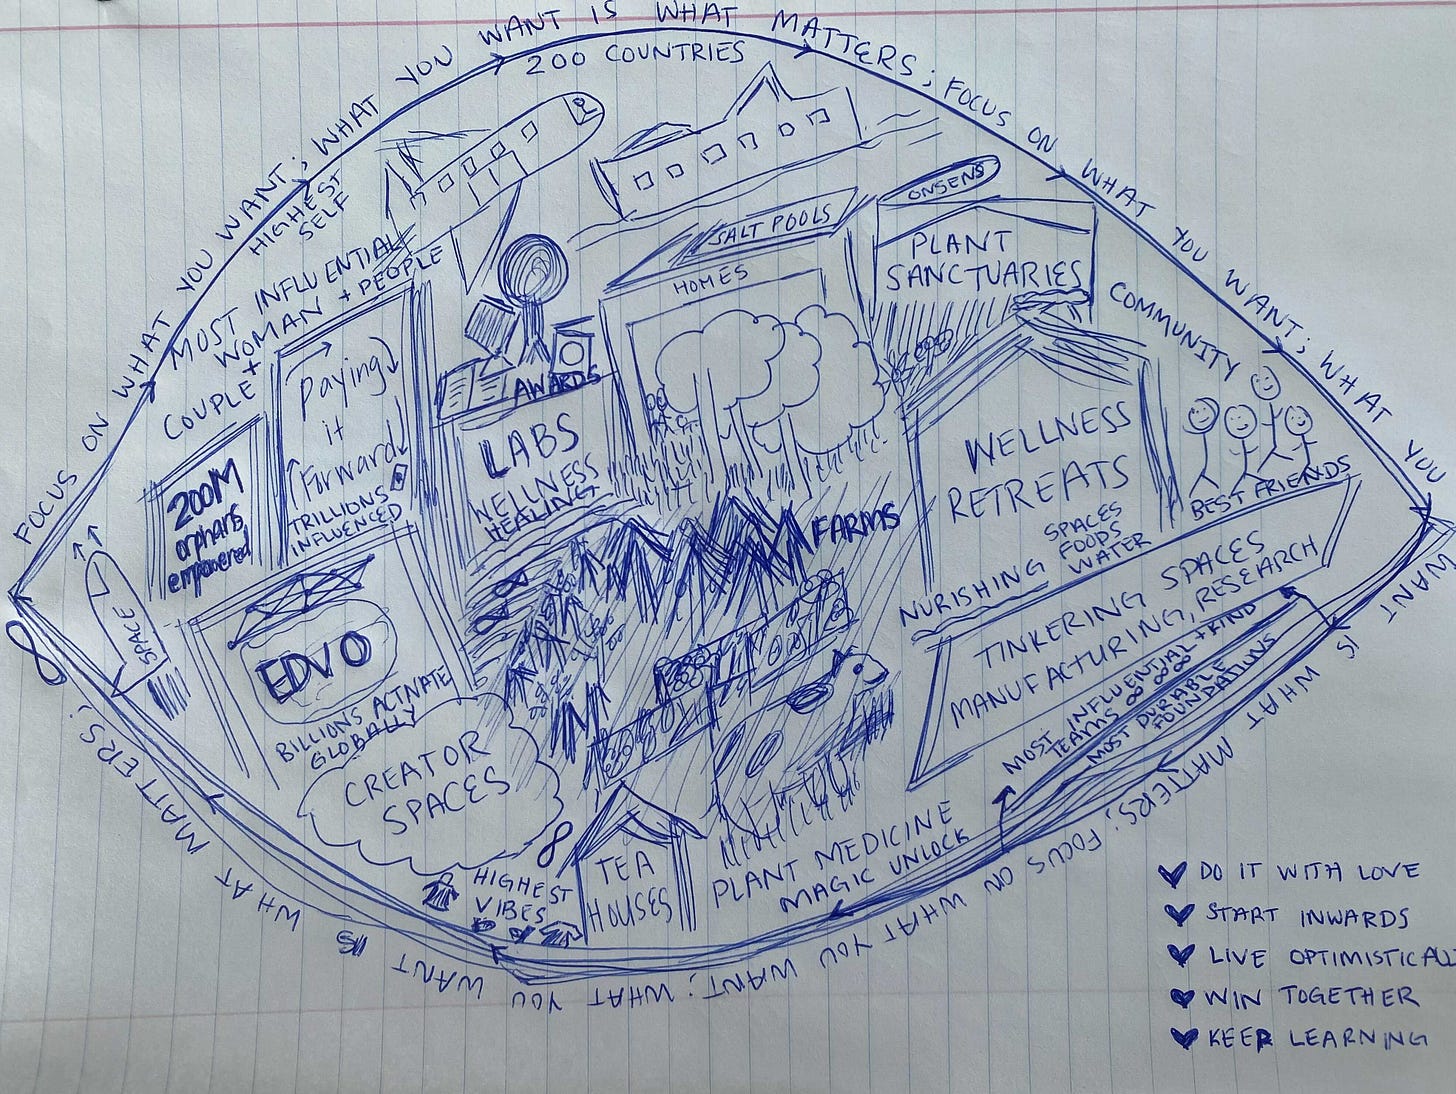 FOCUS ON WHAT YOU WANT; WHAT YOU WANT IS WHAT MATTERS; FOCUS ON WHAT YOU WANT; WHAT YOU WANT IS WHAT MATTERS; FOCUS ON WHAT YOU WANT; WHAT YOU WANT IS WHAT MATTERS;
200 COUNTRIES
HIGHEST
SELF
MOST INFLUENTIAL
COUPLE + WOMAN + PEOPLE
200M
orphans
empowered
paying
it
forward
TRILLIONS
INFLUENCED
AWARDS
LABS
WELLNESS
HEALING
SALT POOLS
HOMES
ONSENS
PLANT
SANCTUARIES
COMMUNITY
BEST FRIENDS
WELLNESS
RETREATS
SPACES
FOODS
WATER
NURISHING
FARMS
SPACE
EDVO
BILLIONS ACTIVATE
GLOBALLY
CREATOR
SPACES
TINKERING SPACES
MANUFACTURING, RESEARCH
MOST INFLUENTIAL + KIND
TEAMS ∞ ∞ ∞
MOST DURABLE
FOUNDATIONS
∞
∞
HIGHEST
VIBES
TEA
HOUSES
PLANT MEDICINE
MAGIC UNLOCK
♥ DO IT WITH LOVE
♥ START INWARDS
♥ LIVE OPTIMISTICALL
♥ WIN TOGETHER
♥ KEEP LEARNING